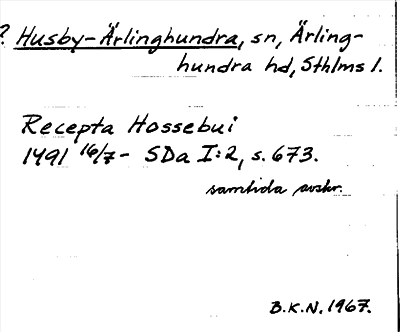 ? Husby-Ärlinghundra, sn, Ärling-
hundra hd, Sthlms l.
Recepta Hossebui
1491 16/7 - SDa I:2, s. 673.
samtida avskr.
B.K.N. 1967.